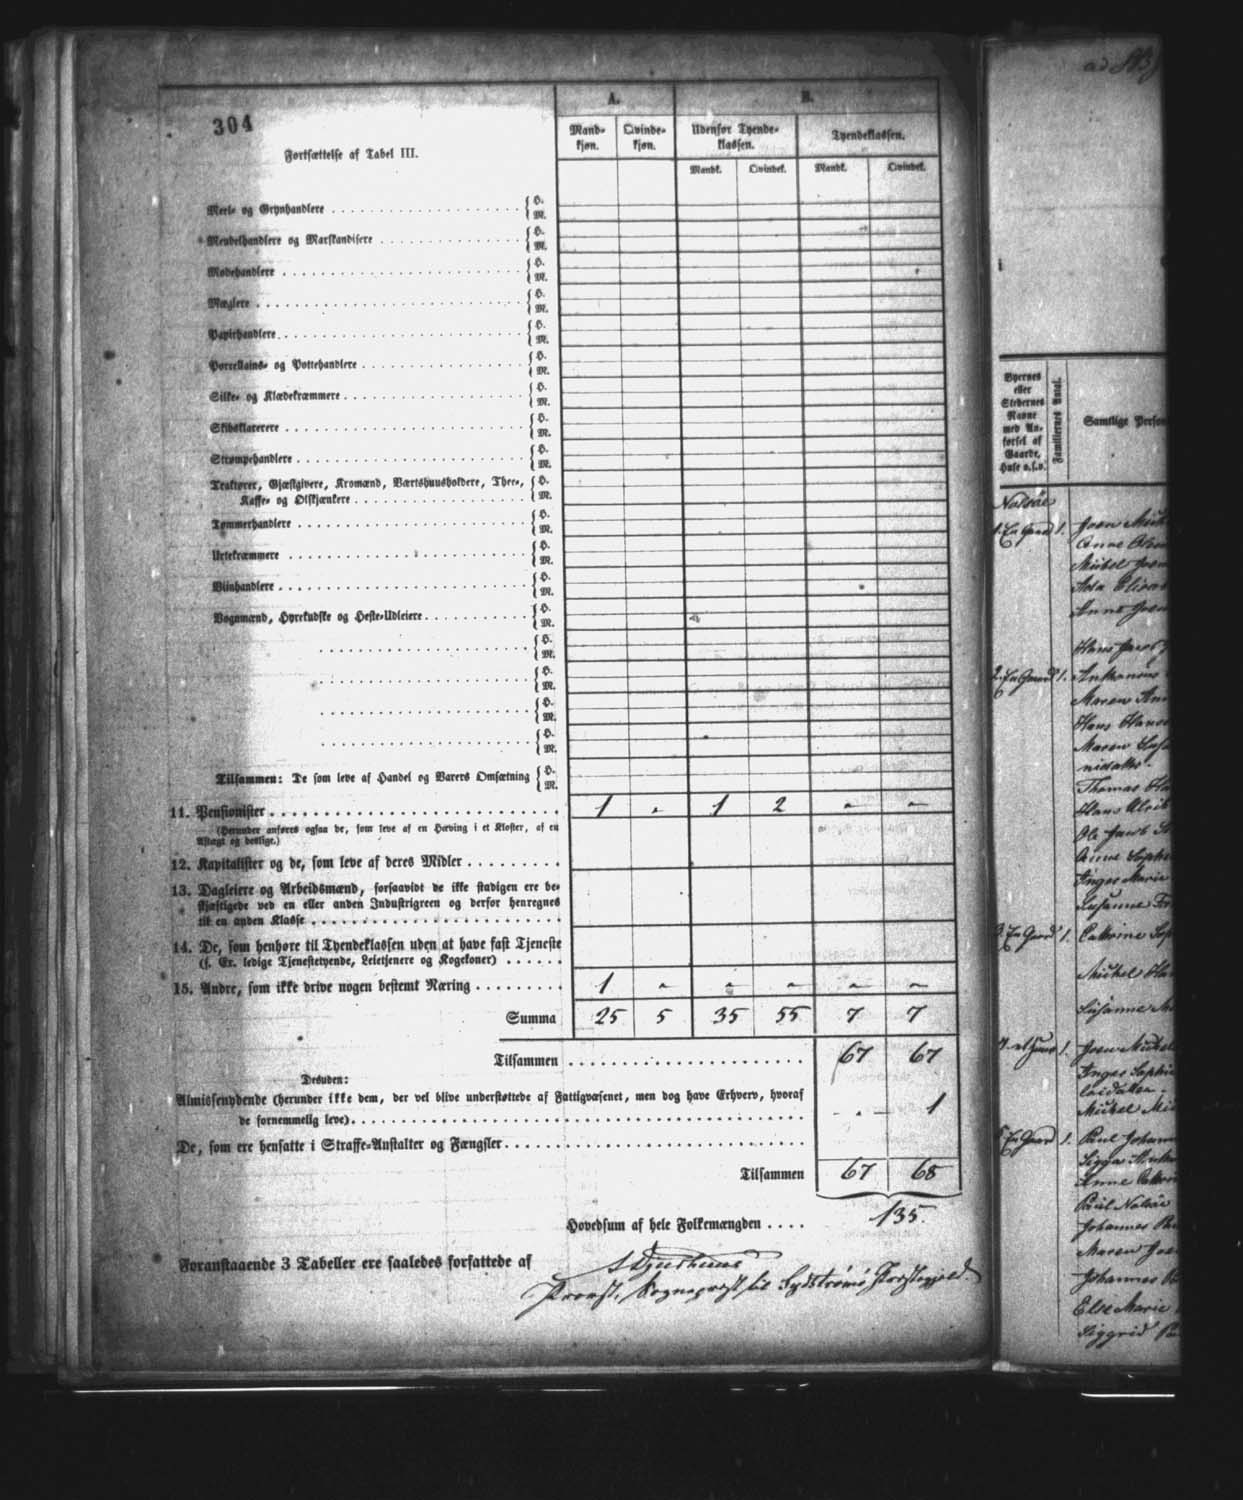 304
Fortsættelse af Tabel III.
A.
B.
Mand-
kjøn.
Qvinde-
kjøn.
Udenfor Tyende-
klassen.
Tyendeklassen.
Mandk.
Qvindek.
Mandk.
Qvindek.
Meel- og Grynhandlere { H. M.
Meubelhandlere og Marskandisere { H. M.
Modehandlere { H. M.
Mæglere { H. M.
Papirhandlere { H. M.
Porcellains- og Pottehandlere { H. M.
Silke- og Klædekræmmere { H. M.
Skibsklarerere { H. M.
Strømpehandlere { H. M.
Traktører, Gjæstgivere, Kromænd, Værtshuusholdere, Thee-,
Kaffe- og Ølskjænkere { H. M.
Tømmerhandlere { H. M.
Urtekræmmere { H. M.
Viinhandlere { H. M.
Vognmænd, Hyrekudske og Heste-Udleiere { H. M.
{ H. M.
{ H. M.
{ H. M.
{ H. M.
Tilsammen: De som leve af Handel og Varers Omsætning { H. M.
11. Pensionister 1 " 1 2 " "
(Herunder anføres ogsaa de, som leve af en Hæving i et Kloster, af en
Aftægt og deslige.)
12. Kapitalister og de, som leve af deres Midler
13. Dagleiere og Arbeidsmænd, forsaavidt de ikke stadigen ere be-
skjæftigede ved en eller anden Industrigreen og derfor henregnes
til en anden Klasse
14. De, som henhøre til Tyendeklassen uden at have fast Tjeneste
(f. Ex. ledige Tjenestetyende, Leietjenere og Kogekoner)
15. Andre, som ikke drive nogen bestemt Næring 1 " " " " "
Summa 25 5 35 55 7 7
Tilsammen 67 67
Desuden:
Almissenydende (herunder ikke dem, der vel blive understøttede af Fattigvæsenet, men dog have Erhverv, hvoraf
de fornemmelig leve) " 1
De, som ere hensatte i Straffe-Anstalter og Fængsler
Tilsammen 67 68
Hovedsum af hele Folkemængden 135.
Foranstaaende 3 Tabeller ere saaledes forfattede af
Provst, Sognepræst til Sydstrømø Præstegjeld.
ad
Byernes
eller
Stedernes
Navne
med An-
førsel af
Gaarde,
Huse o.s.v.
Familiernes Antal.
Samtlige Person
Nolsöe
1. En Gaard 1. Joen
Anne
Mikkel Joen
Ada Elisa
Anne Joen
Hans Jacob
2. En Gaard 1.
Maren Ann
Hans Hans
Maren
Thomas Ha
Hans
Ole Jacob
Anne Sophie
Inger Marie
Susanne
3. En Gaard 1. Cathrine Sop
Mikkel Ha
Susanne
4. et Huus 1. Joen Mikkel
Inger Sophie
Mikkel
5. En Gaard 1. Paul Johann
Anne
Paul Nolsöe
Johannes Pa
Maren Joen
Johannes P
Else Marie
Siggrid